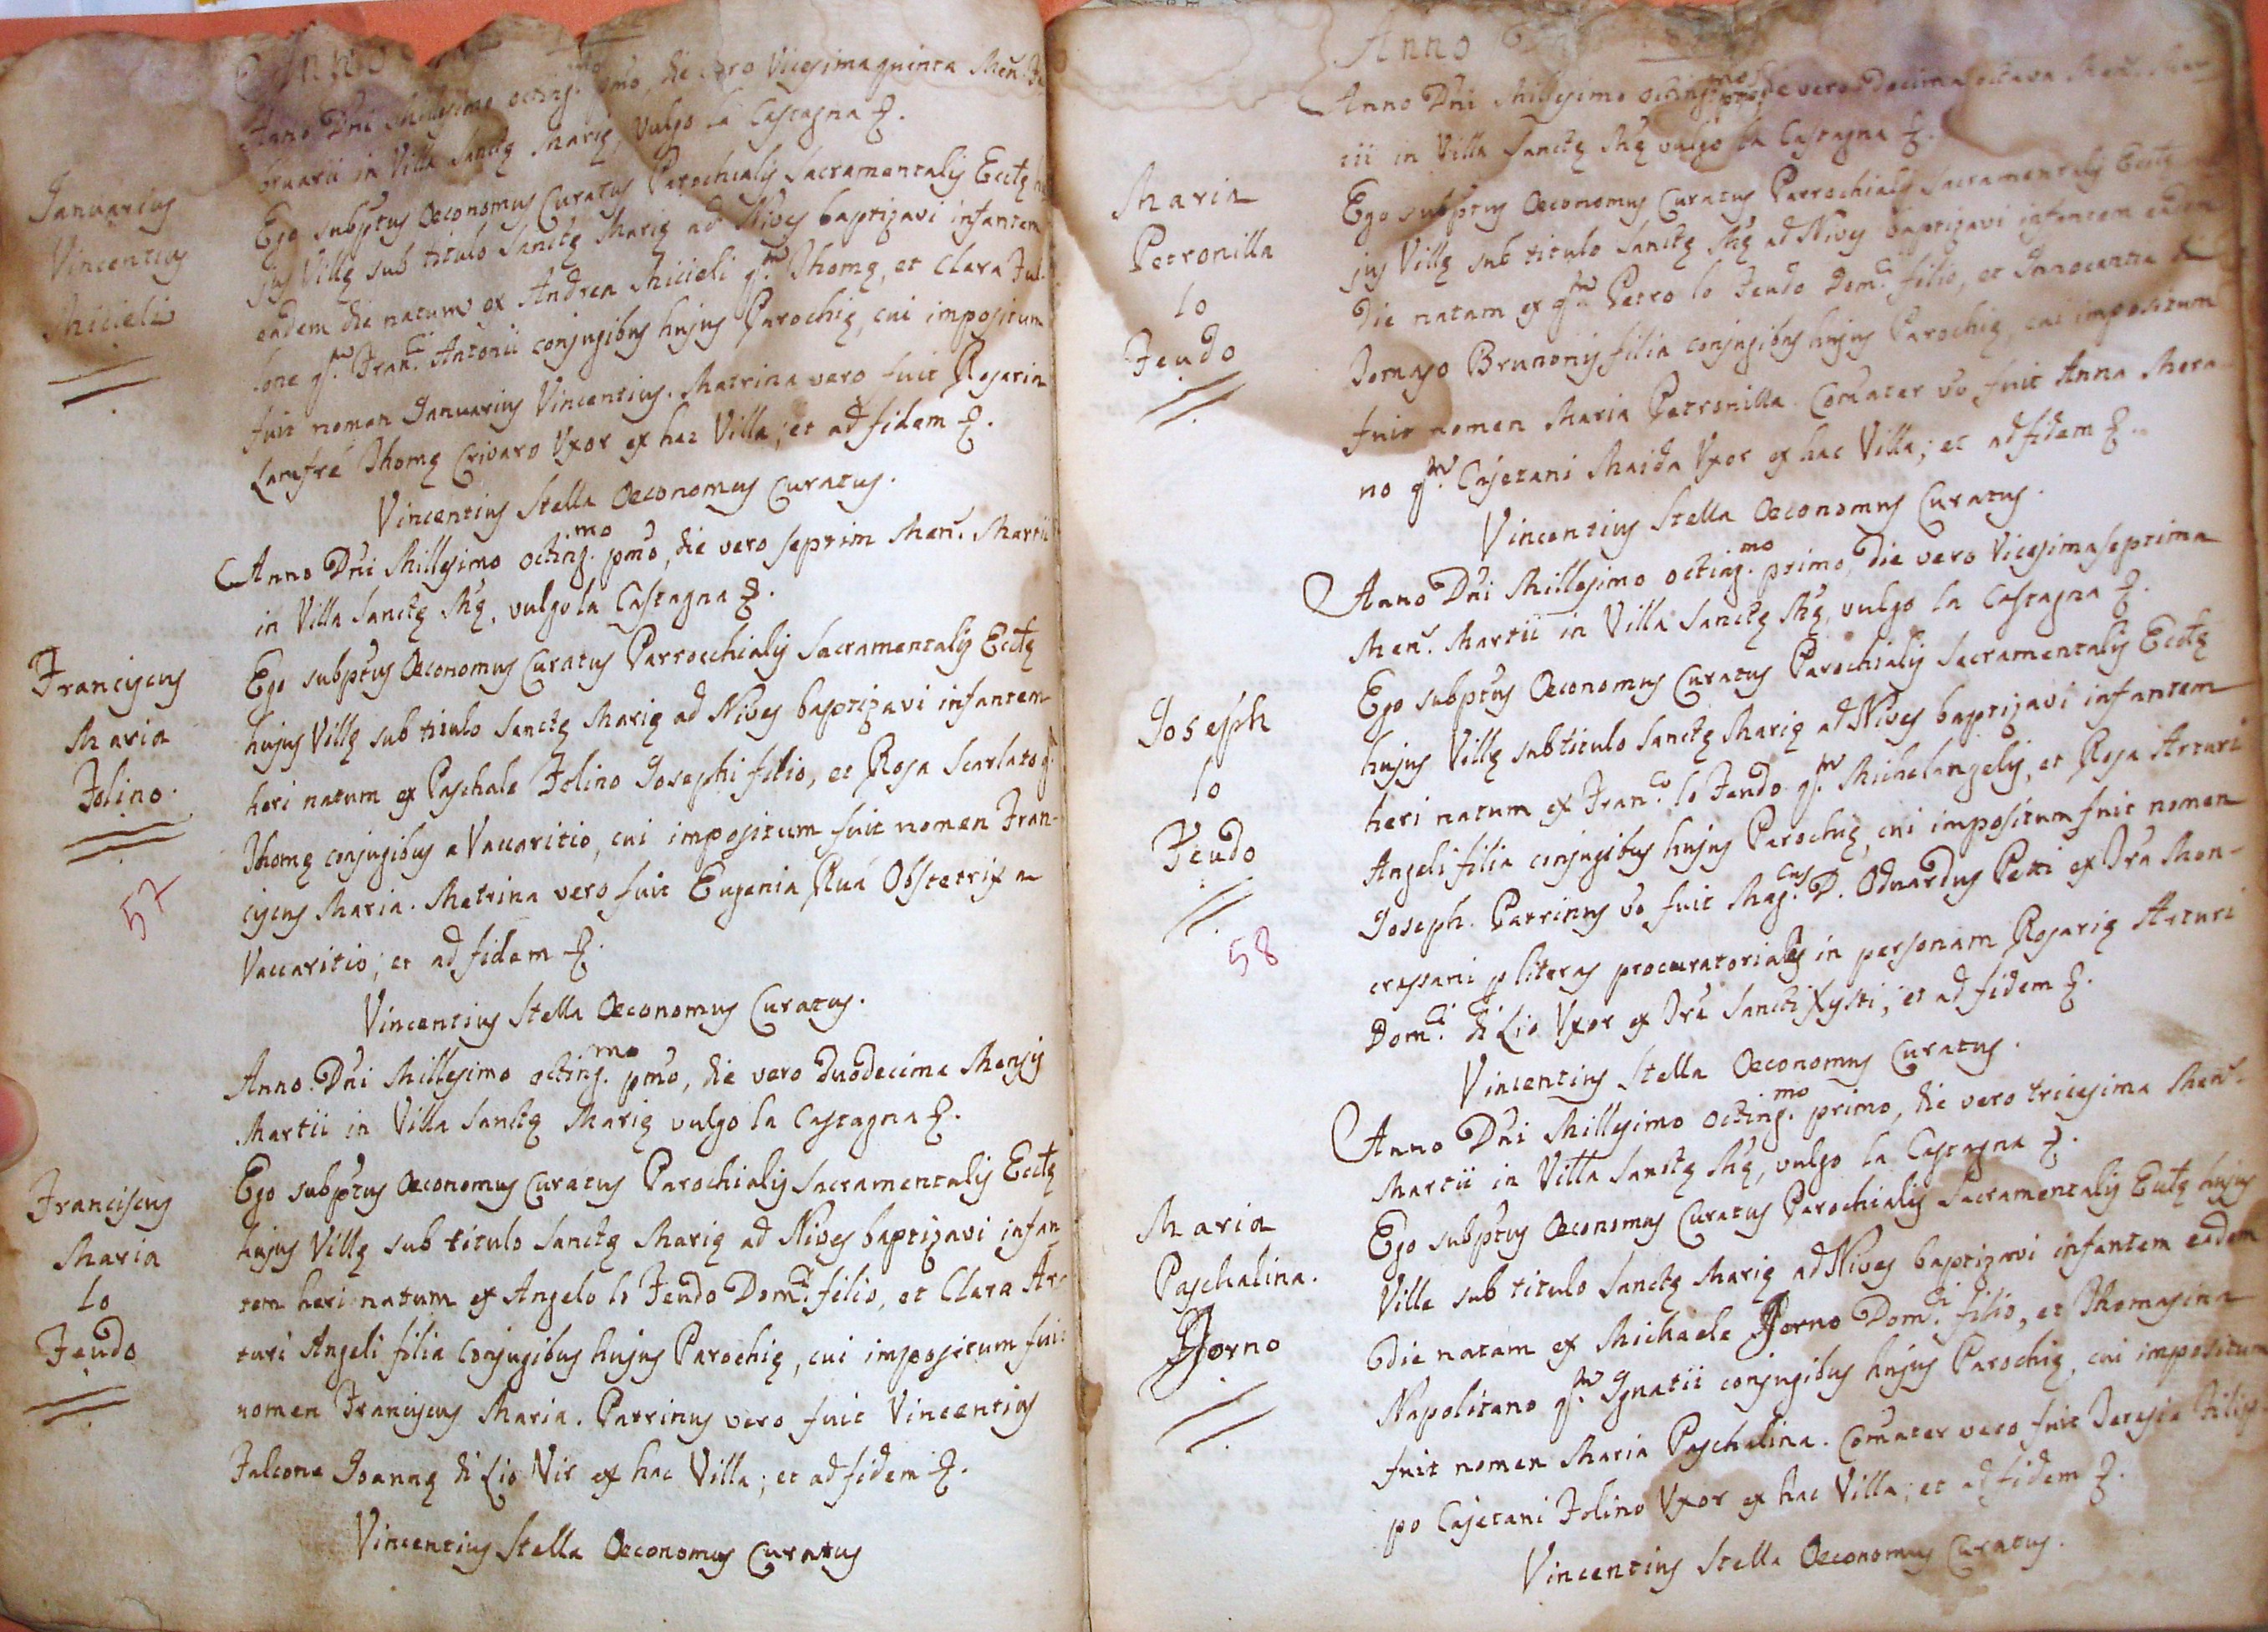 Anno
Anno Dni Millesimo octing.mo pmo, die vero Vicesimaquinta Men. Fe
bruarii in Villa Sanctę Marię, vulgo la Castagna &.
Januarius
Vincentius
Micieli
Ego subptus Oeconomus Curatus Parochialis Sacramentalis Ecclę hu
jus Villę sub titulo Sanctę Marię ad Nives baptizavi infantem
eadem die natum ex Andrea Micieli qm Thomę, et Clara Ful-
lone qm Fran.ci Antonii conjugibus hujus Parochię, cui impositum
fuit nomen Januarius Vincentius. Matrina vero fuit Rosaria
Lanfré Thomę Crivaro Uxor ex hac Villa; et ad fidem &.
Vincentius Stella Oeconomus Curatus.
Anno Dni Millesimo octing.mo pmo, die vero septim Men. Martii
in Villa Sanctę Mę, vulgo la Castagna &.
Franciscus
Maria
Tolino.
57
Ego subptus Oeconomus Curatus Parrocchialis Sacramentalis Ecclę
hujus Villę sub titulo Sanctę Marię ad Nives baptizavi infantem
heri natum ex Paschale Tolino Josephi filio, et Rosa Scarlato qm
Thomę conjugibus a Vaccaritio, cui impositum fuit nomen Fran-
ciscus Maria. Matrina vero fuit Eugenia Rua Obstetrix a
Vaccaritio; et ad fidem &.
Vincentius Stella Oeconomus Curatus.
Anno Dni Millesimo octing.mo pmo, die vero duodecima Mensis
Martii in Villa Sanctę Marię vulgo la Castagna &.
Franciscus
Maria
lo
Feudo
Ego subptus Oeconomus Curatus Parochialis Sacramentalis Ecclę
hujus Villę sub titulo Sanctę Marię ad Nives baptizavi infan
tem heri natum ex Angelo lo Feudo Dom.ci filio, et Clara Ar-
turi Angeli filia conjugibus hujus Parochię, cui impositum fuit
nomen Franciscus Maria. Patrinus vero fuit Vincentius
Falcone Joannę di Lio Vir ex hac Villa; et ad fidem &.
Vincentius Stella Oeconomus Curatus
Anno
Anno Dni Millesimo octing.mo pmo, die vero Decimaoctava Men. Mar
tii in Villa Sanctę Mę vulgo la Castagna &.
Maria
Petronilla
lo
Feudo
Ego subptus Oeconomus Curatus Parrochialis Sacramentalis Ecclę
jus Villę sub titulo Sanctę Mę ad Nives baptizavi infantem eadem
die natam ex qm Petro lo Feudo Dom.ci filio, et Innocentia di
Tomaso Brunonis filia conjugibus hujus Parochię, cui impositum
fuit nomen Maria Petronilla. Comater vo fuit Anna Mora
no qm Cajetani Maida Uxor ex hac Villa; et ad fidem &.
Vincentius Stella Oeconomus Curatus.
Anno Dni Millesimo octing.mo primo, die vero Vicesimaseptima
Men. Martii in Villa Sanctę Mę, vulgo la Castagna &.
Joseph
lo
Feudo
58
Ego subptus Oeconomus Curatus Parochialis Sacramentalis Ecclę
hujus Villę sub titulo Sanctę Marię ad Nives baptizavi infantem
heri natum ex Fran.co lo Feudo qm Michelangelis, et Rosa Arturi
Angeli filia conjugibus hujus Parochię, cui impositum fuit nomen
Joseph. Patrinus vo fuit Mag.cus D. Oduardus Petti ex Tra Mon-
crassani p literas procuratoriales in personam Rosarię Arturi
Dom.ci di Lio Uxor ex Tra Sancti Xysti; et ad fidem &.
Vincentius Stella Oeconomus Curatus.
Anno Dni Millesimo octing.mo primo, die vero tricesima Men.
Martii in Villa Sanctę Mę, vulgo la Castagna &.
Maria
Paschalina.
Jorno
Ego subptus Oeconomus Curatus Parochialis Sacramentalis Ecclę hujus
Ville sub titulo Sanctę Marię ad Nives baptizavi infantem eadem
die natam ex Michaele Jorno Dom.ci filio, et Thomasina
Napolitano qm Ignatii conjugibus hujus Parochię, cui impositum
fuit nomen Maria Paschalina. Comater vero fuit Teresia Filip-
po Cajetani Tolino Uxor ex hac Villa; et ad fidem &.
Vincentius Stella Oeconomus Curatus.